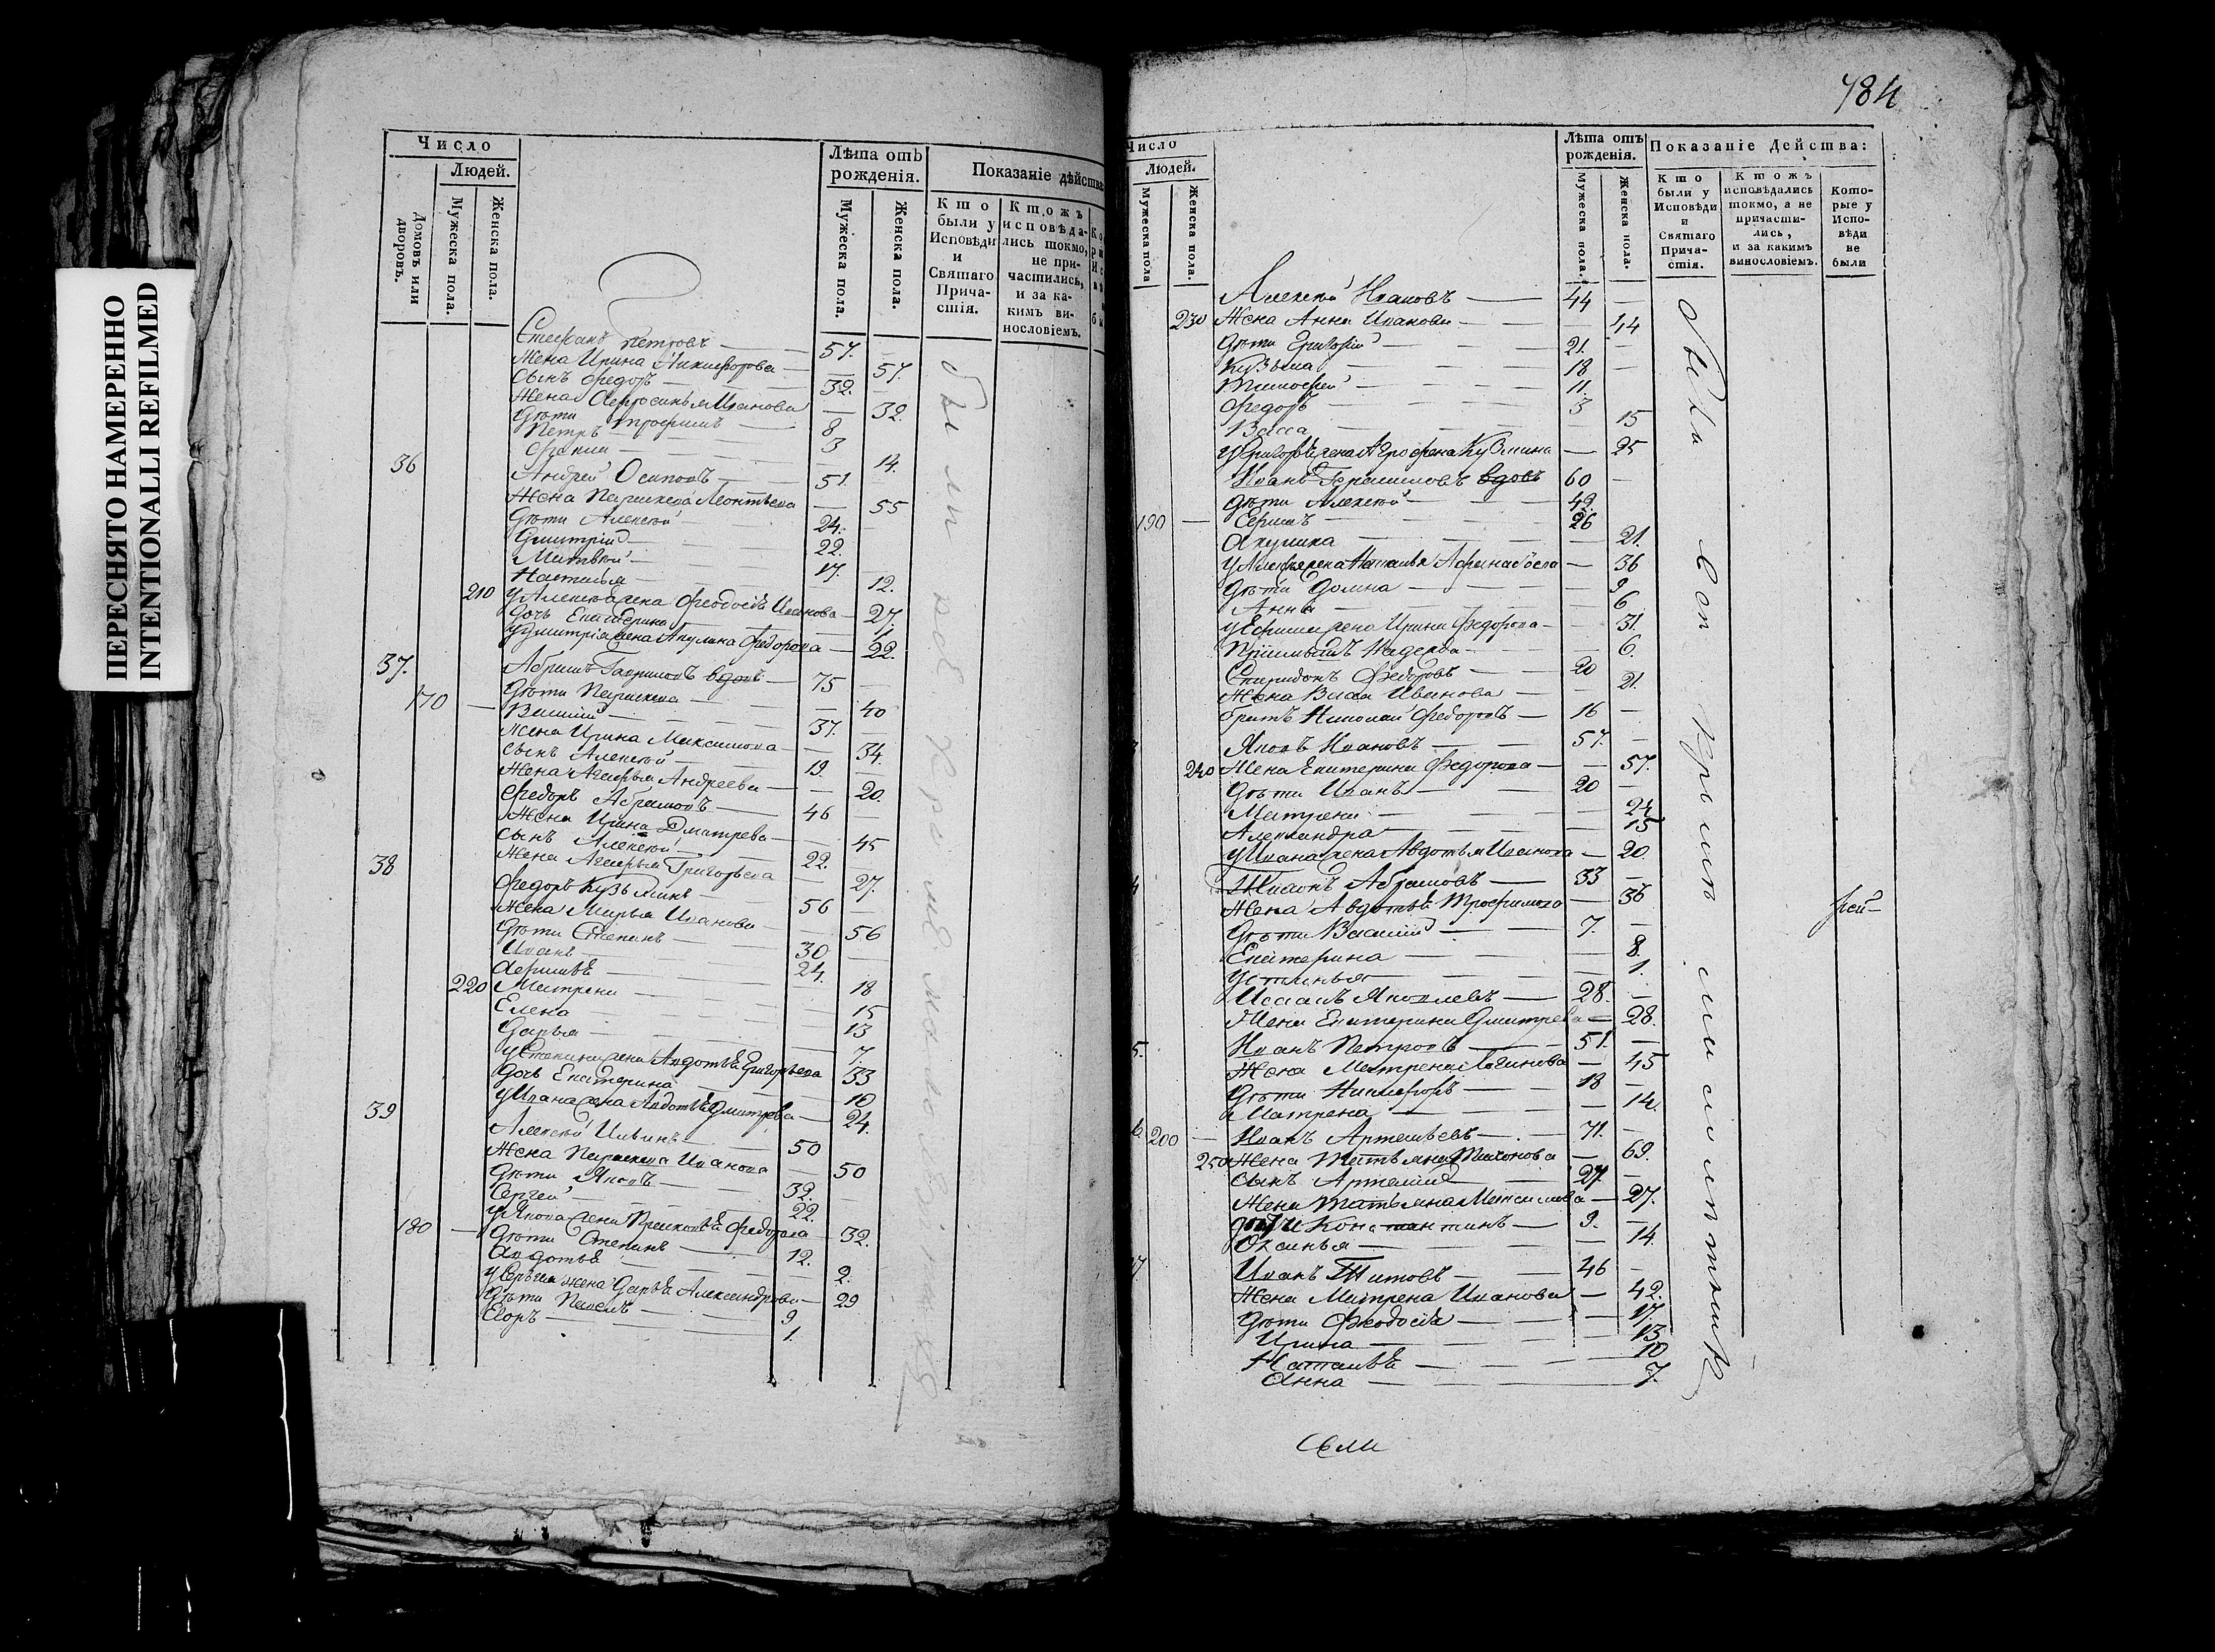 ПЕРЕСНЯТО НАМЕРЕННО
INTENTIONALLI REFILMED
Число
Людей.
Домовъ или дворовъ.
Мужеска пола.
Женска пола.
Лѣта отъ рожденія.
Мужеска пола.
Женска пола.
Показаніе дѣйства
Кто были у Исповѣди и Святаго Причастія.
Ктожъ исповѣдались токмо, не причастились, и за какимъ винословіемъ.
Стефанъ Петровъ — 57.
Жена Ирина Никифорова — 57.
Сынъ Федоръ — 32.
Жена Иванова — 32.
Дѣти Трофимъ — 8
Петръ — 3
14.
36 Андрей Осиповъ — 51
Жена Параскева Леонтьева — 55
Дѣти Алексѣй — 24.
Дмитрій — 22.
Матвѣй — 17.
Наталья — 12.
210 у Алексѣя жена Феодосья Иванова — 27.
Дочь Екатерина — 1
у Дмитрія жена Акулина Федорова — 22.
37. Абрамъ Гавриловъ вдовъ — 75
Дѣти Параскева — 40
170 — Василий — 37.
Жена Ирина Максимова — 34.
Сынъ Алексѣй — 19.
Жена Агафья Андреева — 20.
Федоръ Абрамовъ — 46
Жена Ирина Дмитрева — 45
Сынъ Алексѣй — 22.
Жена Агафья Григорьева — 27.
38 Федоръ Кузьминъ — 56
Жена Марья Иванова — 56
Дѣти Степанъ — 30
Иванъ — 24.
18
220 Матрена — 15
Елена — 13
Дарья — 7.
у Степана жена Авдотья Григорьева 33
Дочь Екатерина — 10
у Ивана жена Авдотья Дмитрева — 24.
39 Алексѣй Ильинъ — 50
Жена Параскева Иванова — 50
Дѣти Яковъ — 32.
Сергей — 22.
у Якова жена Федорова — 32.
180 — Дѣти Степанъ — 12.
Авдотья — 2.
у Сергѣя жена Дарья Александрова — 29
Дѣти Павелъ — 9
Егоръ — 1.
784
Число
Людей.
Мужеска пола
Женска пола.
Лѣта отъ рожденія.
Мужеска пола.
Женска пола.
Показаніе Действа:
Кто были у Исповѣди и Святаго Причастія.
Ктожъ исповѣдались токмо, а не причастились, и за какимъ винословіемъ.
Которые у Исповѣди не были
Алексѣй Ивановъ — 44
230 Жена Анна Иванова — 44
Дѣти Григорій — 21.
Кузьма — 18
Тимофей — 11.
Федоръ — 3
Васса — 15
у Григорья жена Агрофена Кузмина — 25
Иванъ Герасимовъ вдовъ 60
Дѣти Алексѣй — 42.
190 — 26
Акулина — 21.
у Алексѣя жена Наталья — 36
Дѣти Домна — 9
Анна — 6
жена Ирина Федорова — 31.
Надежда — 6.
Спиридонъ Федоровъ — 20
Жена Васса Иванова — 21.
братъ Николай Федоровъ — 16
Яковъ Ивановъ — 57.
240 Жена Екатерина Федорова — 57.
Дѣти Иванъ — 20
Матрена — 24
Александра — 15
у Ивана жена Авдотья Иванова — 20.
Абрамовъ — 33
Жена Авдотья Трофимова — 36
Дѣти Василій — 7.
Екатерина — 8.
Устинья — 1.
Исаакъ Яковлевъ — 28.
Жена Екатерина Дмитрева — 28.
5. Иванъ Петровъ — 51.
Жена Матрена — 45
Дѣти Никифоръ — 18
Матрена — 14.
6. 200 — Иванъ Артемьевъ — 71.
250 Жена Татьяна Тихонова — 69.
Сынъ Артемій — 27
Жена Татьяна — 27.
Константинъ — 9.
Оксинья — 14.
7 Иванъ Титовъ — 46
Жена Матрена Иванова — 42.
Дѣти Феодосія — 17.
Ирина — 13
Наталья — 10
Анна — 7.